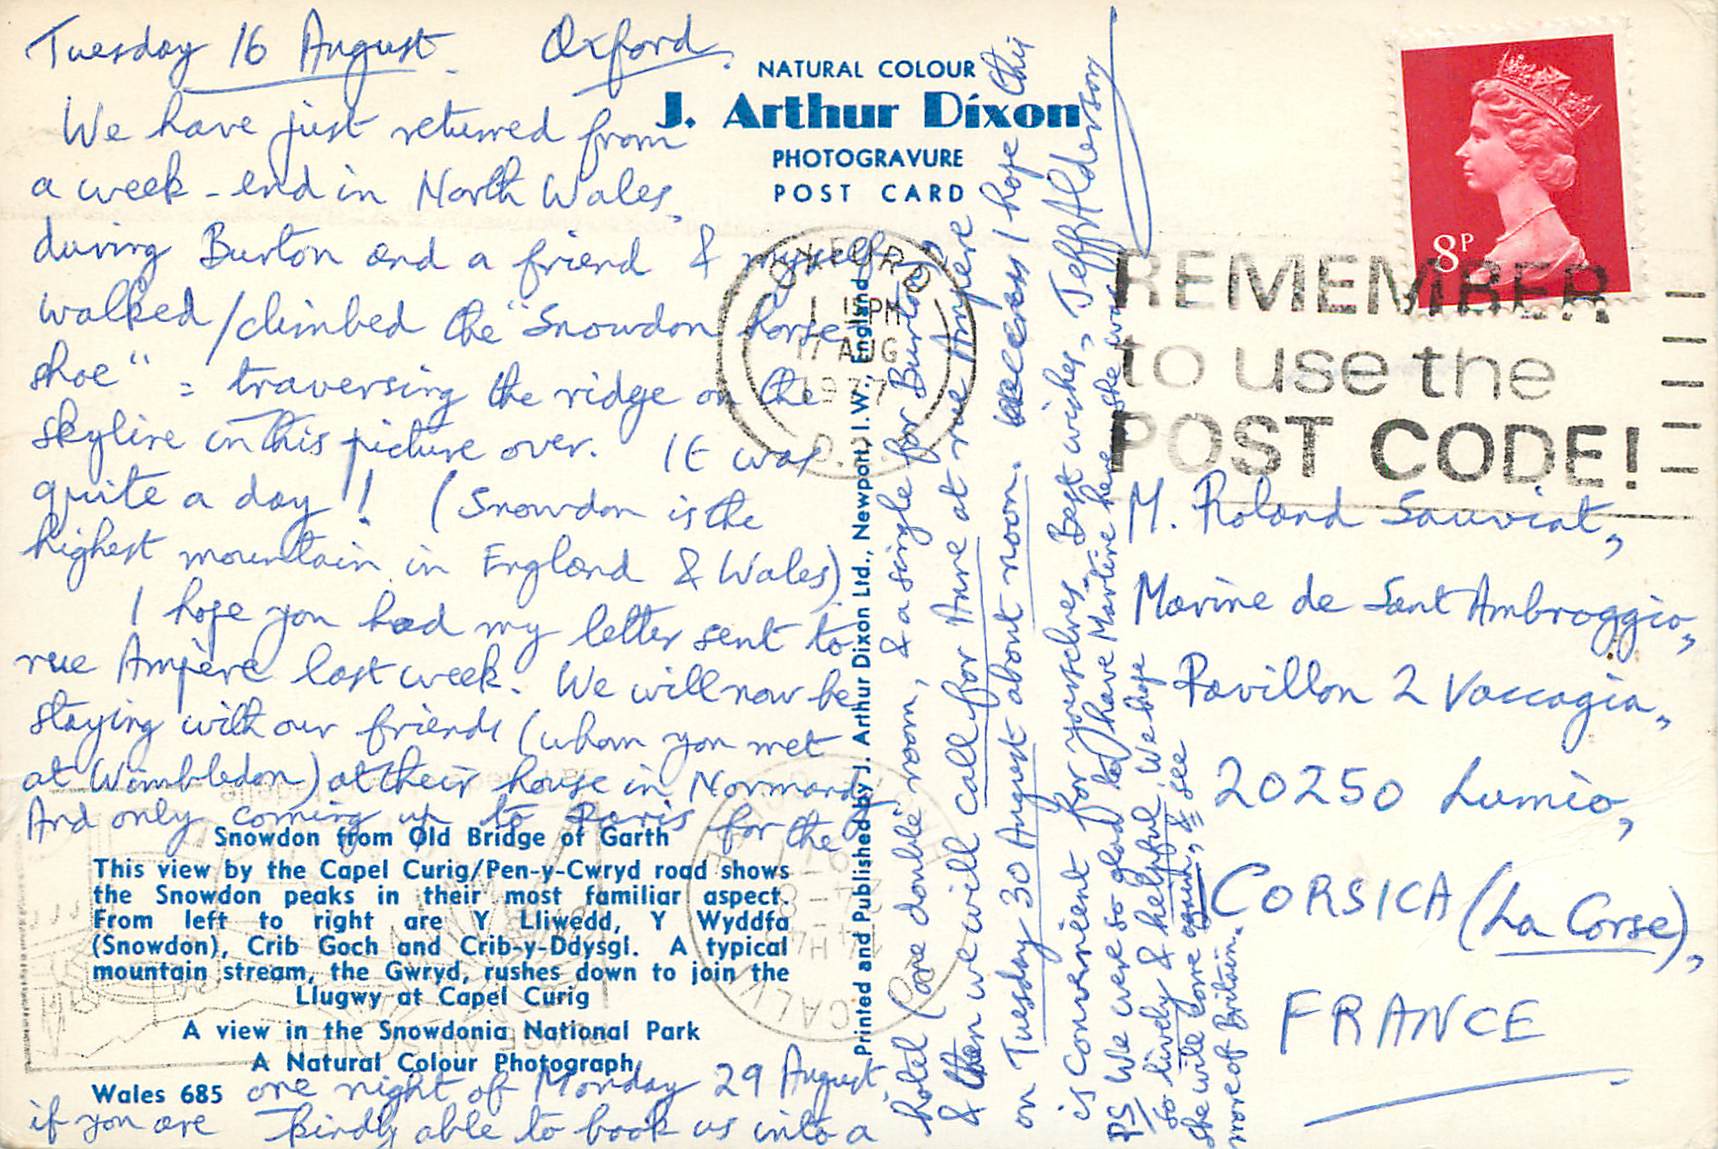 Tuesday 16 August. Oxford.
We have just returned from
a week-end in North Wales,
during Burton and a friend & myself
walked/climbed the "Snowdon horse
shoe" = traversing the ridge on the
skyline in this picture over. It was
quite a day!! (Snowdon is the
highest mountain in England & Wales)
I hope you had my letter sent to
rue Ampère last week. We will now be
staying with our friends (whom you met
at Wimbledon) at their house in Normandy
And only coming up to Paris for the
one night of Monday 29 August
if you are kindly able to book us into a
hotel (one double room, & a single for Burton)
& then we will call for Anne at rue Ampère
on Tuesday 30 August about noon. I hope this
is convenient for yourselves. Best wishes, Jeff Alderson
PS We were so glad to have Martine here, she was
so lively & helpful. We hope
she will come again, & see
more of Britain.
NATURAL COLOUR
J. Arthur Dixon
PHOTOGRAVURE
POST CARD
Printed and Published by J. Arthur Dixon Ltd., Newport, I.W., England
Snowdon from Old Bridge of Garth
This view by the Capel Curig/Pen-y-Cwryd road shows
the Snowdon peaks in their most familiar aspect.
From left to right are Y Lliwedd, Y Wyddfa
(Snowdon), Crib Goch and Crib-y-Ddysgl. A typical
mountain stream, the Gwryd, rushes down to join the
Llugwy at Capel Curig
A view in the Snowdonia National Park
A Natural Colour Photograph
Wales 685
OXFORD
1 15 PM
17 AUG
1977
8P
REMEMBER
to use the
POST CODE!
M. Roland Sauviat,
Marine de Sant Ambroggio,
Pavillon 2 Vaccagia,
20250 Lumio,
CORSICA (La Corse),
FRANCE